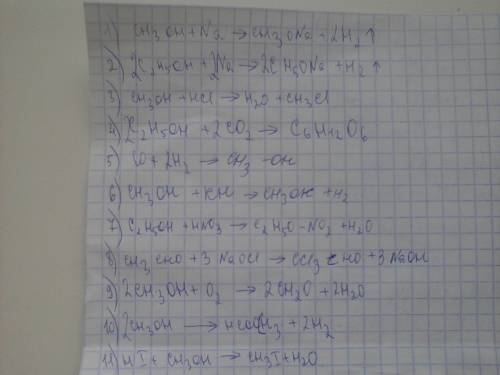 1) CH3OH + Na → CH3ONa + 2H2↑
2) 2C2H5OH + 2Na → 2C2H5ONa + H2↑
3) CH3OH + HCl → H2O + CH3Cl
4) 2C2H5OH + 2CO2 → C6H12O6
5) CO + 2H2 → CH3-OH
6) CH3OH + KH → CH3OK + H2
7) C2H5OH + HNO3 → C2H5O-NO2 + H2O
8) CH3CHO + 3NaOCl → CCl3CHO + 3NaOH
9) 2CH3OH + O2 → 2CH2O + 2H2O
10) 2CH3OH → HCOOCH3 + 2H2
11) HI + CH3OH → CH3I + H2O